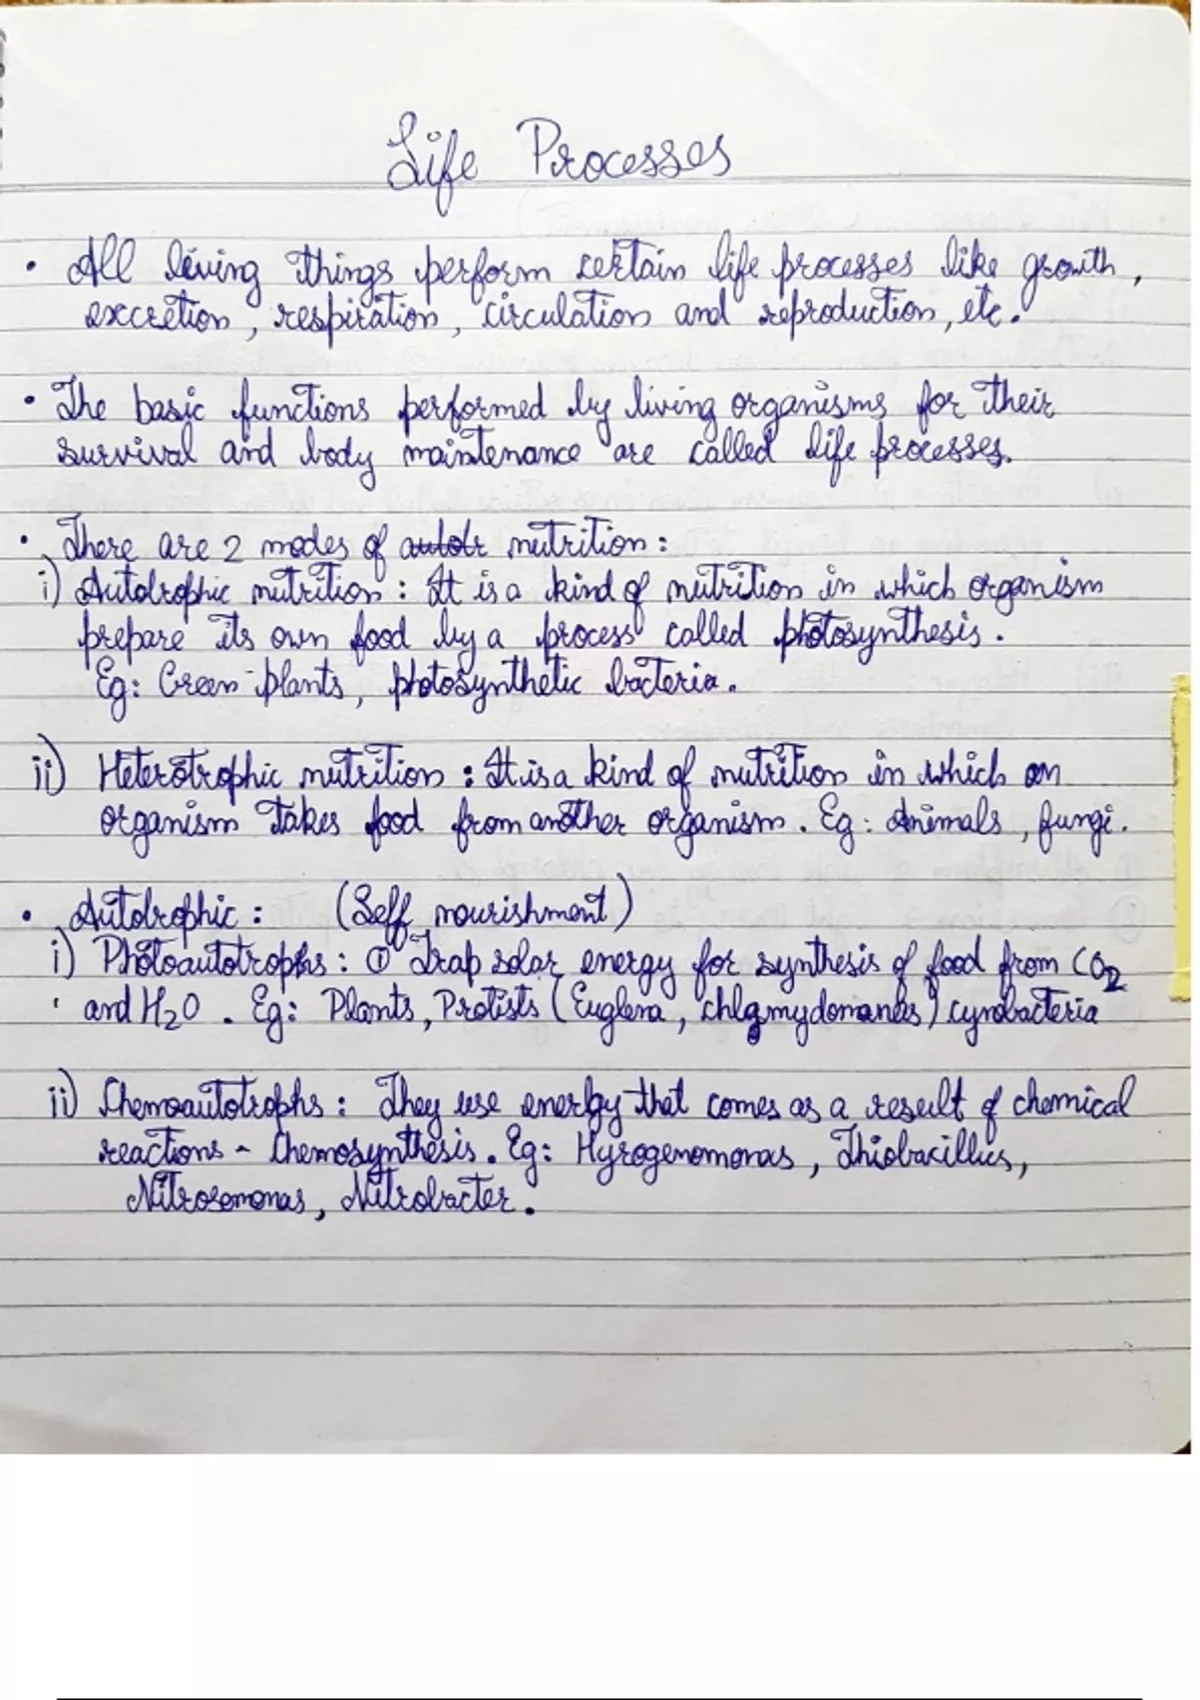 Life Processes
• All living things perform certain life processes like growth,
excretion, respiration, circulation and reproduction, etc.
• The basic functions performed by living organisms for their
survival and body maintenance are called life processes.
• There are 2 modes of autotr nutrition:
i) Autotrophic nutrition: It is a kind of nutrition in which organism
prepare its own food by a process called photosynthesis.
Eg: Green plants, photosynthetic bacteria.
ii) Heterotrophic nutrition: It is a kind of nutrition in which an
organism takes food from another organism. Eg: Animals, fungi.
• Autotrophic: (Self nourishment)
i) Photoautotrophs: ① Trap solar energy for synthesis of food from CO2
and H2O. Eg: Plants, Protists (Euglena, chlamydomanas) cynobacteria
ii) Chemoautotrophs: They use energy that comes as a result of chemical
reactions - Chemosynthesis. Eg: Hyrogenomonas, Thiobacillus,
Nitrosomonas, Nitrobacter.